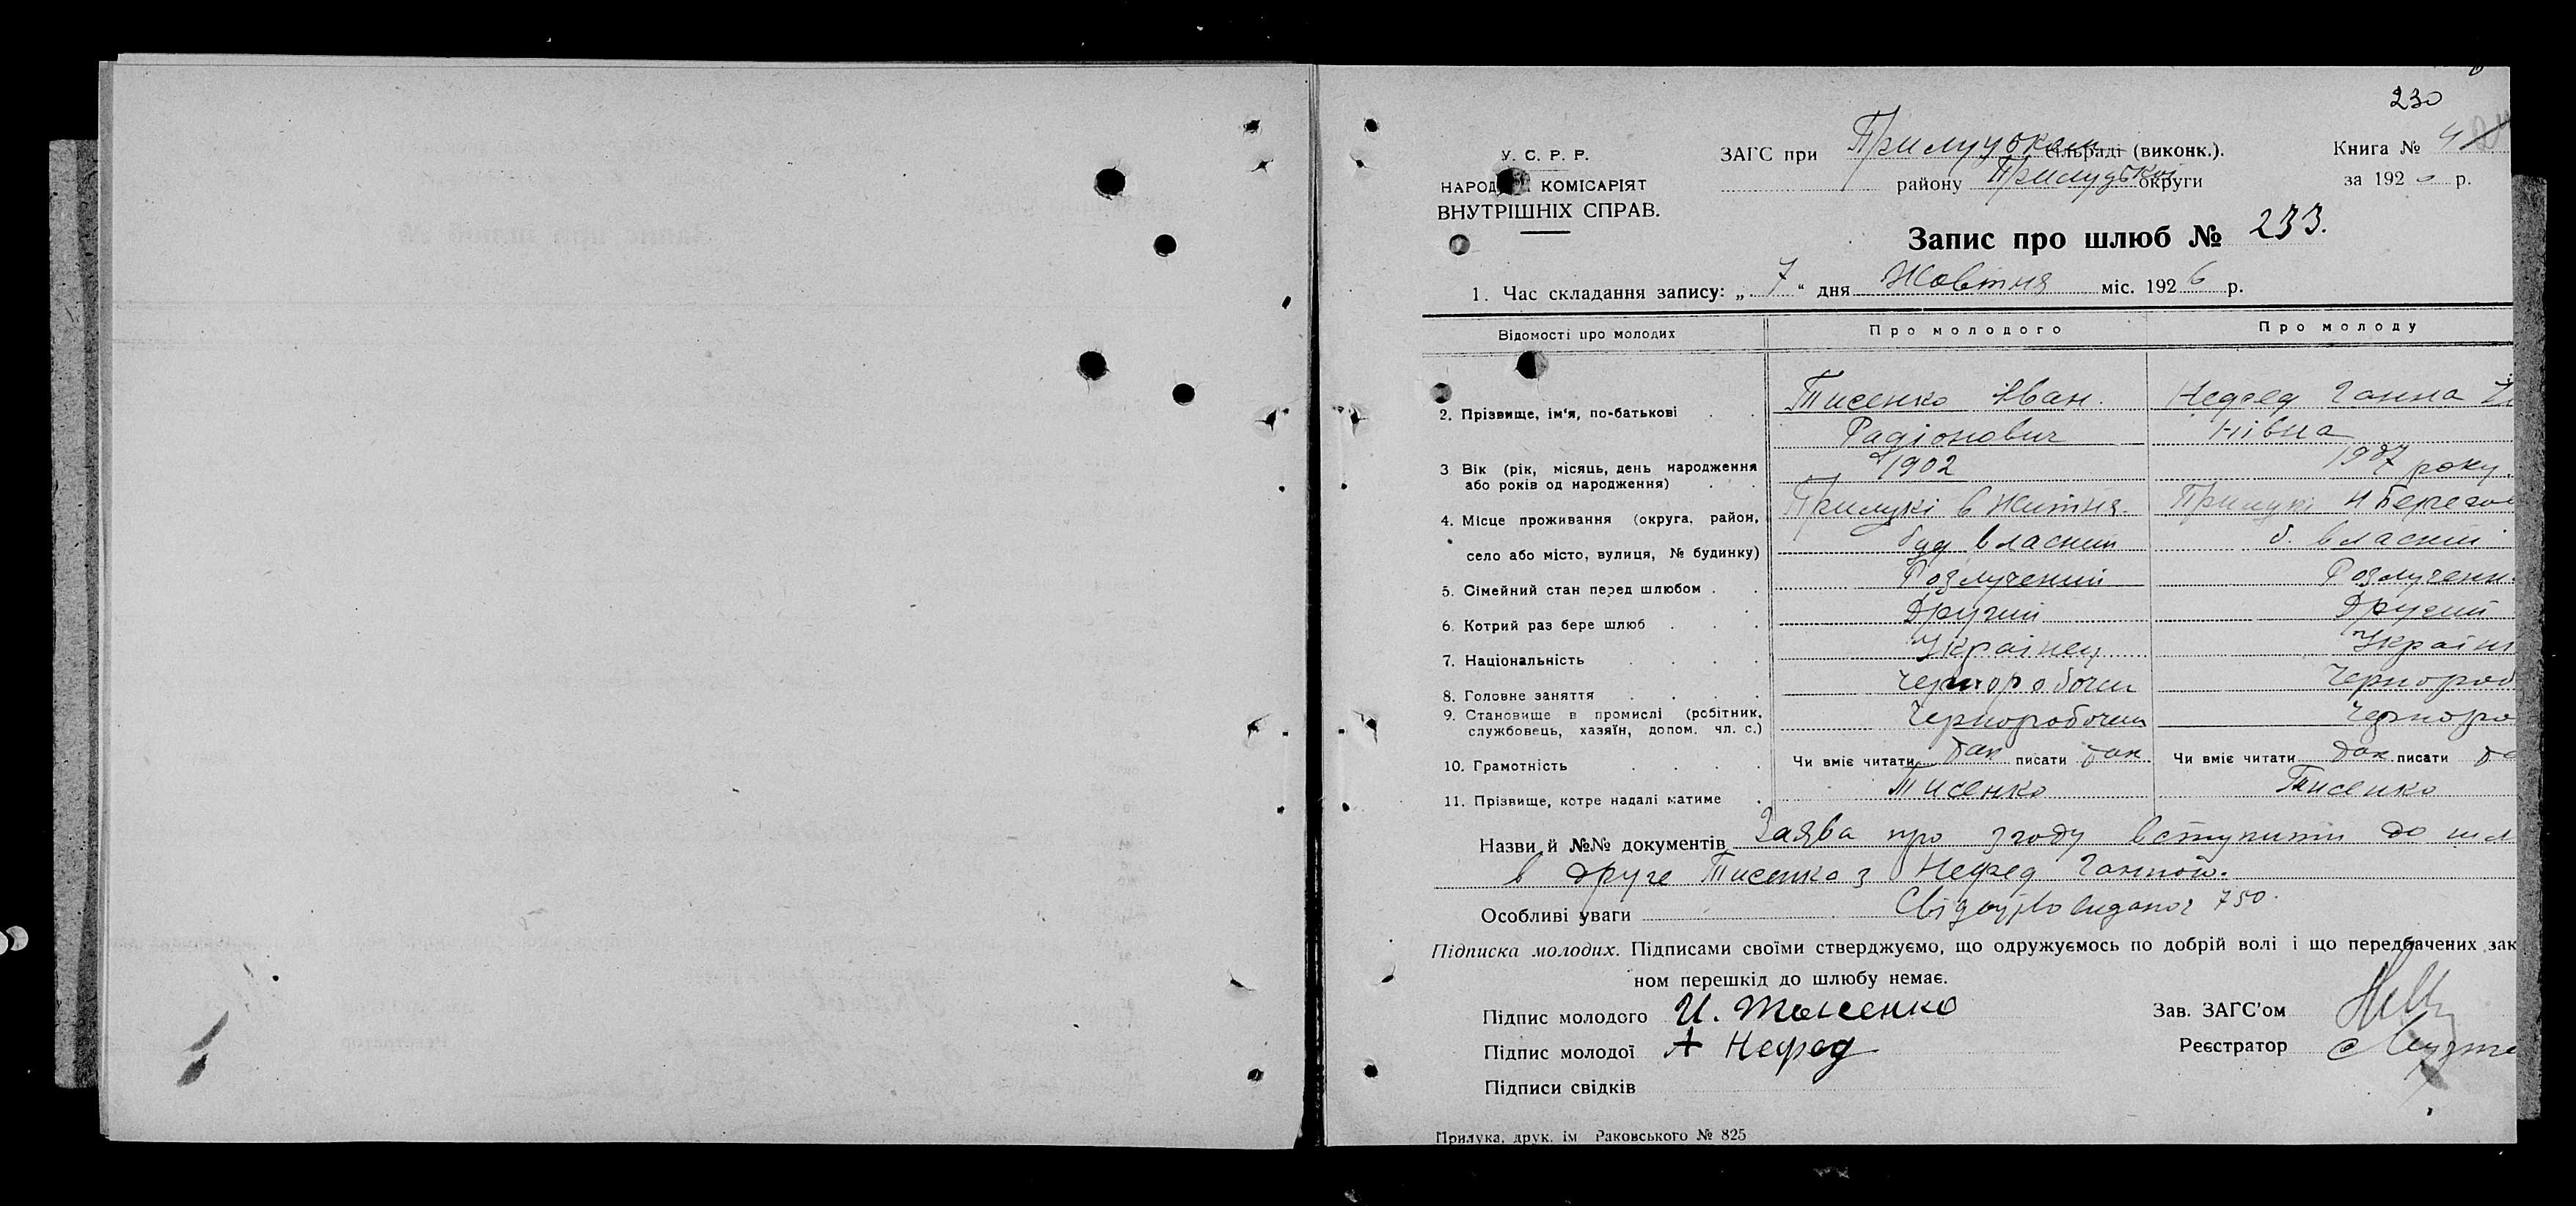 230
У. С. Р. Р.
НАРОДНИЙ КОМІСАРІЯТ
ВНУТРІШНІХ СПРАВ.
ЗАГС при Прилуцком сільраді (виконк.).
району Прилуцької округи
Книга № 4
за 192 р.
Запис про шлюб № 233.
1. Час складання запису: „ 7 “ дня Жовтня міс. 1926 р.
Відомості про молодих Про молодого Про молоду
2. Прізвище, ім'я, по-батькові . . Тисенко Іван. Нефед Ганна
Радіонович нівна
3 Вік (рік, місяць, день народження або років од народження) . . 1902 1907 року.
4. Місце проживання (округа, район, Прилукі в Житня. Прилукі Н Берегов
село або місто, вулиця, № будинку) буд власний б. власній
5. Сімейний стан перед шлюбом . . Розлучений Розлучен.
6. Котрий раз бере шлюб . . . Другий Другий
7. Національність . . . . Українец Україн
8. Головне заняття . . . . Черноробочий Чернороб
9. Становище в промислі (робітник, службовець, хазяїн, допом. чл. с.) Черноробочий Черноро
10. Грамотність . . . . Чи вміє читати так писати так Чи вміє читати так писати та
11. Прізвище, котре надалі матиме . Тисенко Тисенко
Назви й №№ документів Заява про згоду вступити до шл
в друге Тисенко з Нефед Ганной.
Особливі уваги 750.
Підписка молодих. Підписами своїми стверджуємо, що одружуємось по добрій волі і що передбачених зак
ном перешкід до шлюбу немає.
Підпис молодого И. Тысенко Зав. ЗАГС'ом
Підпис молодої А Нефед Реєстратор
Підписи свідків
Прилука, друк. ім Раковського № 825